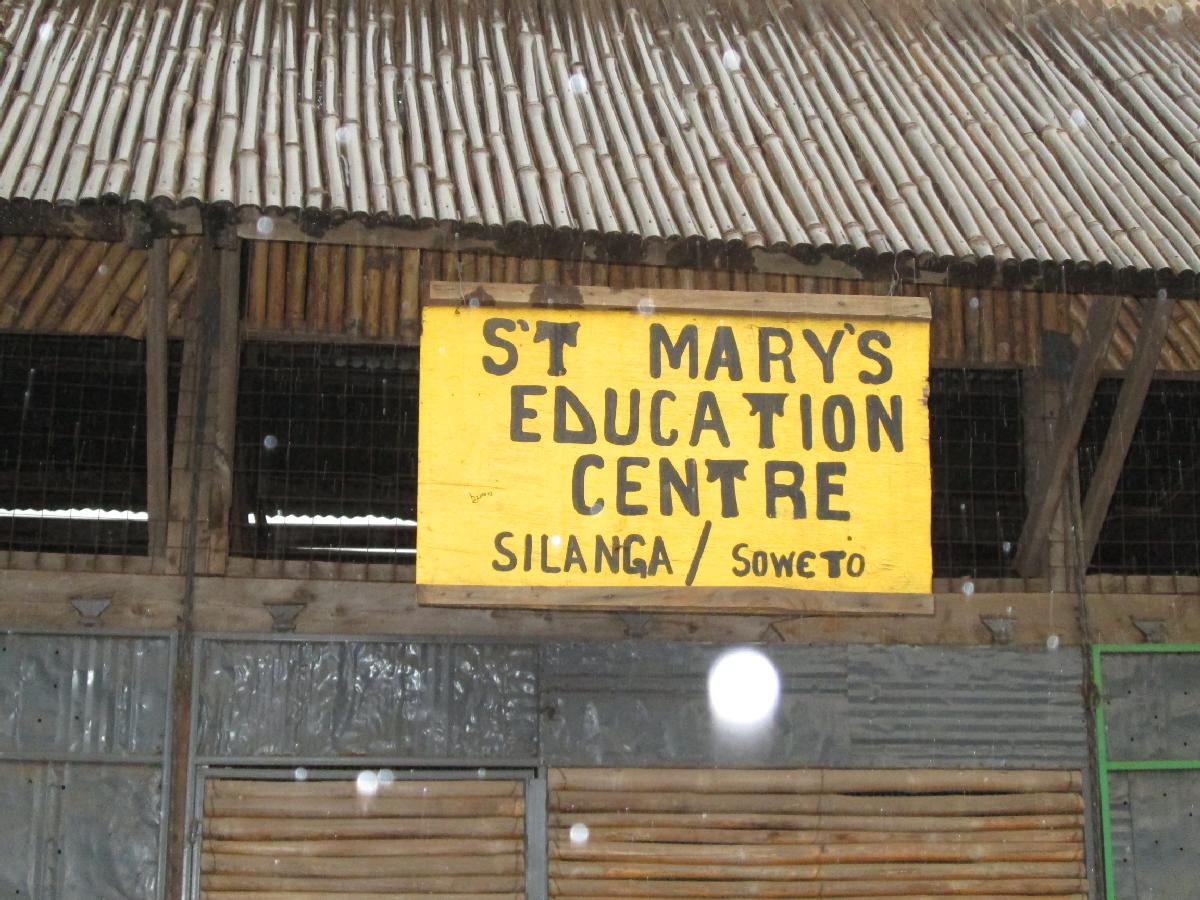 S'T MARY'S
EDUCATION
CENTRE
SILANGA/SOWETO